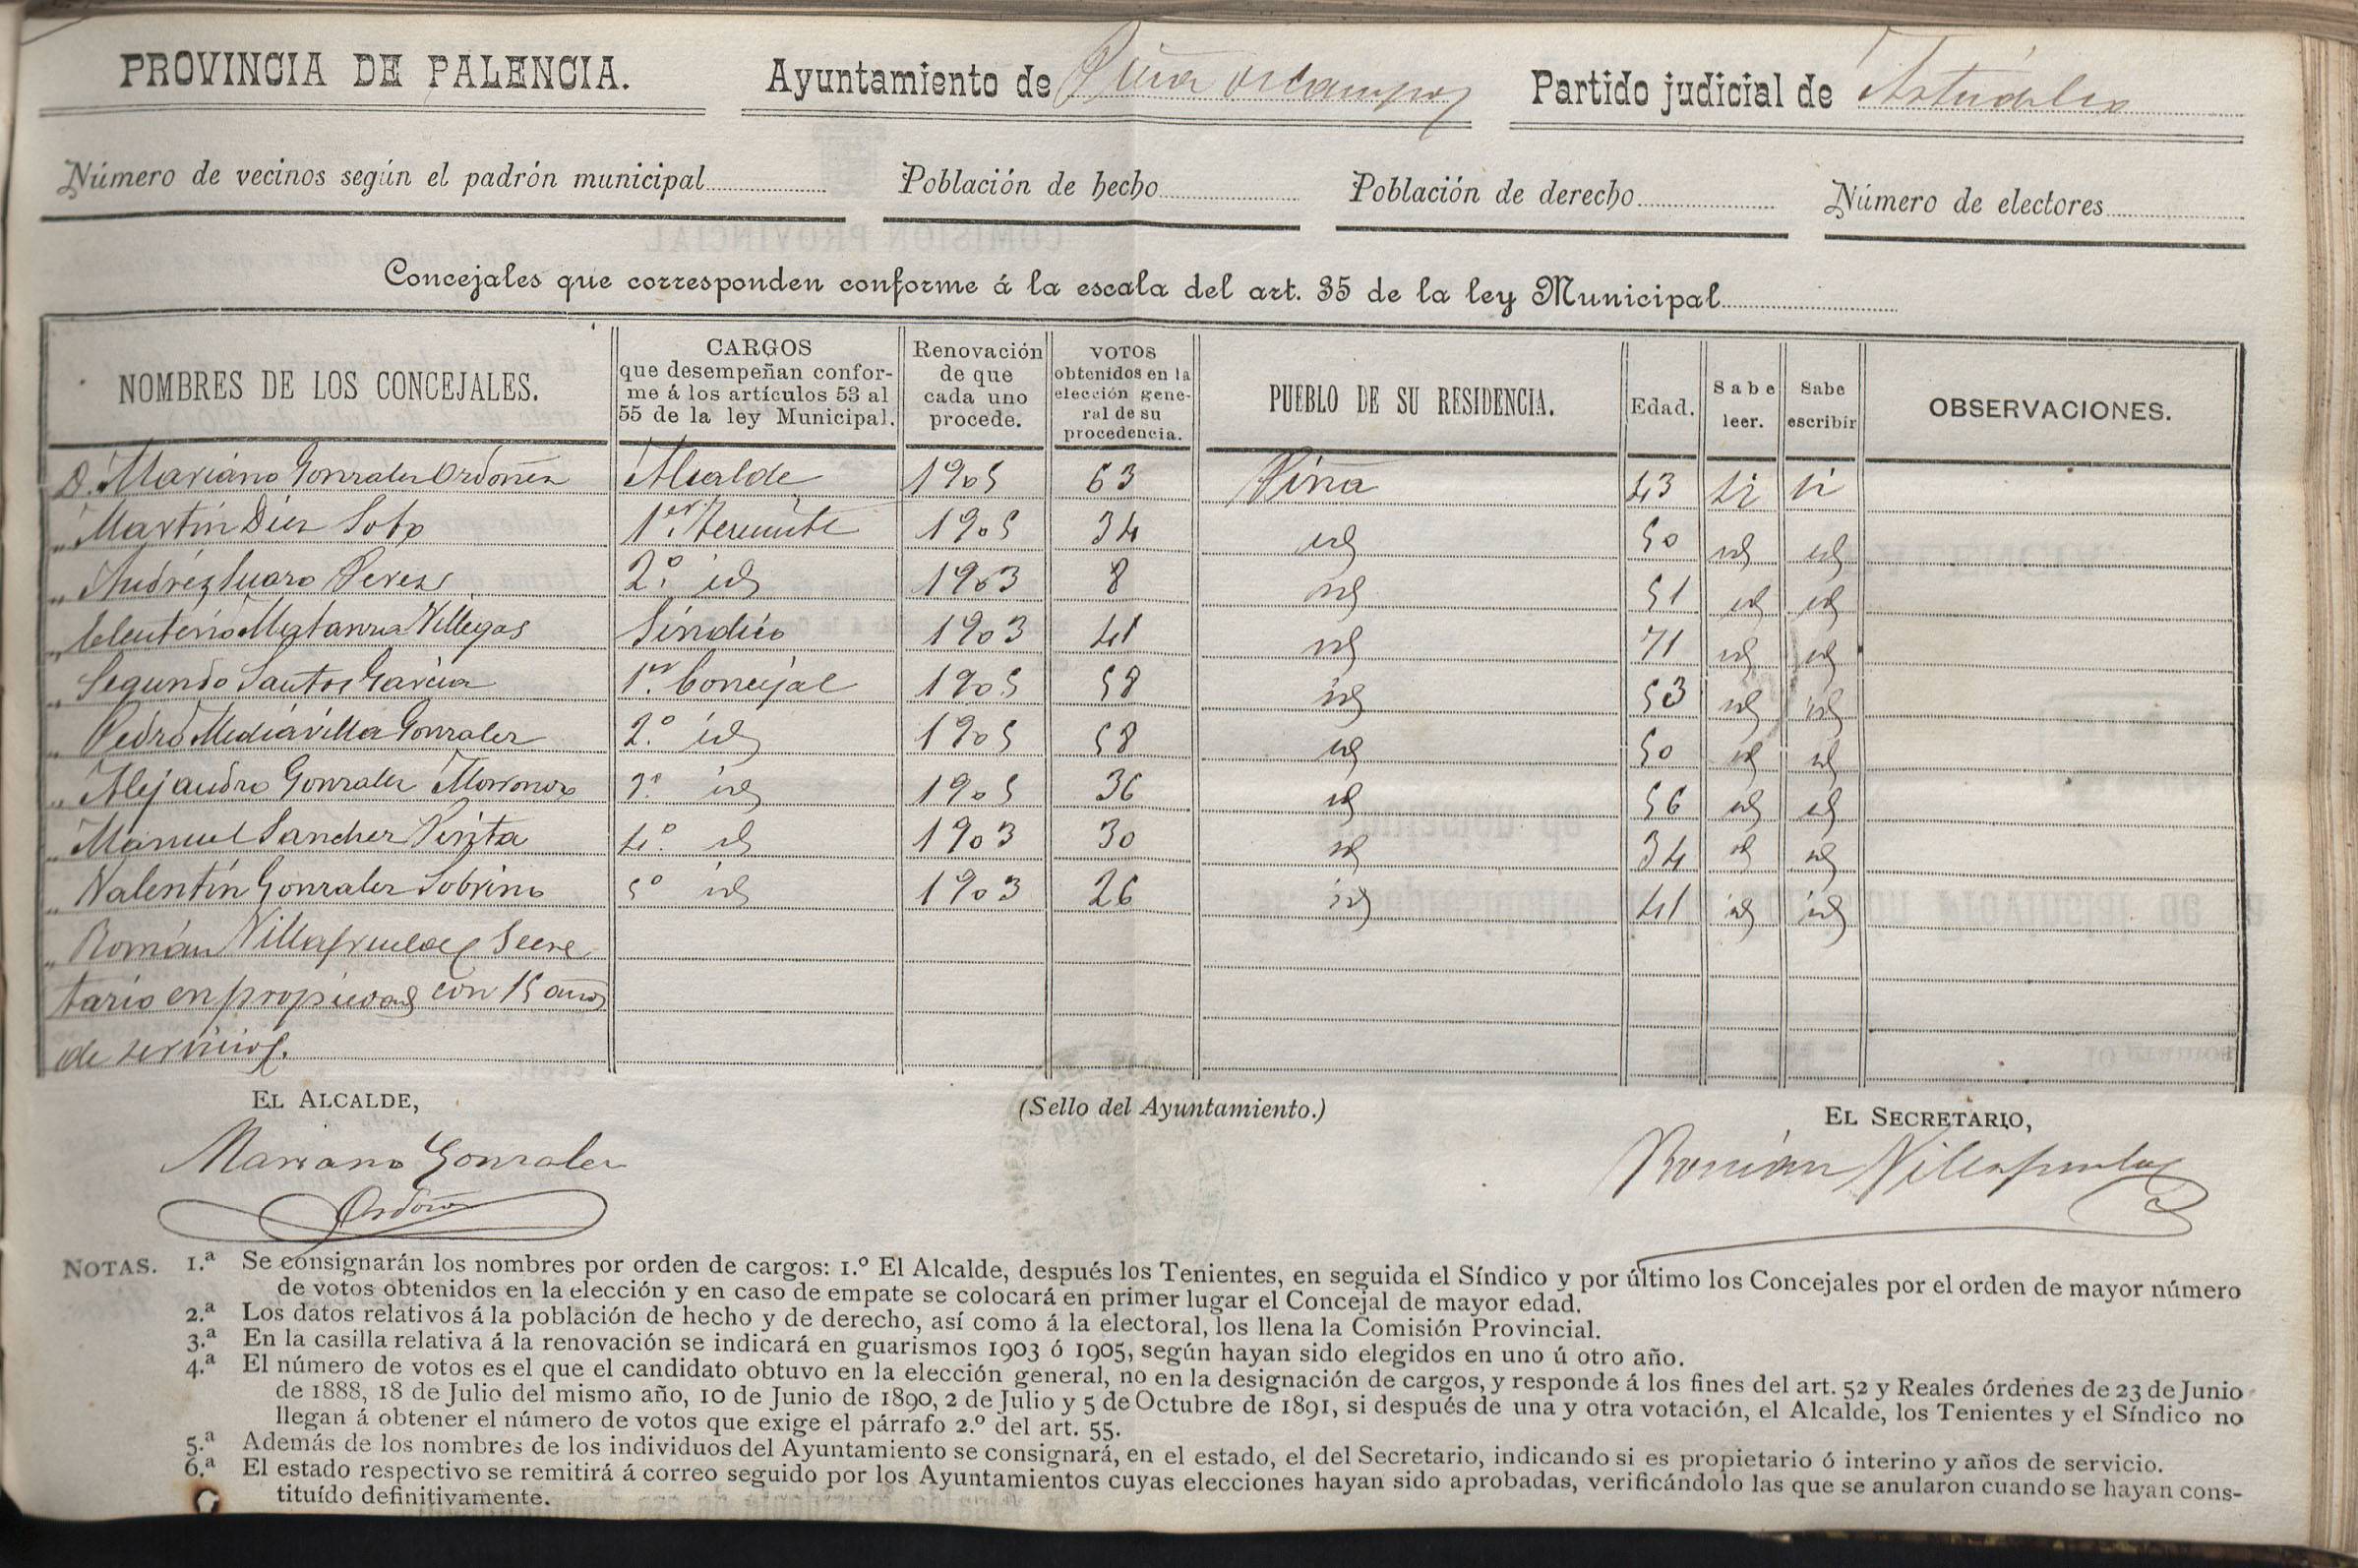 PROVINCIA DE PALENCIA. Ayuntamiento de Piña de Campos Partido judicial de Astudillo
Número de vecinos según el padrón municipal Población de hecho Población de derecho Número de electores
Concejales que corresponden conforme á la escala del art. 35 de la ley Municipal
NOMBRES DE LOS CONCEJALES. CARGOS que desempeñan confor-me á los artículos 53 al 55 de la ley Municipal. Renovación de que cada uno procede. VOTOS obtenidos en la elección gene-ral de su procedencia. PUEBLO DE SU RESIDENCIA. Edad. Sabe leer. Sabe escribir OBSERVACIONES.
D. Mariano Gonzalez Ordoñez Alcalde 1905 63 Piña 43 si si
" Martín Diez Soto 1er. Teniente 1905 34 id 50 id id
" Andrés Suaro Perez 2.º id 1903 8 id 51 id id
" Eleuterio Matanza Villegas Síndico 1903 41 id 71 id id
" Segundo Santos García 1er. Concejal 1905 58 id 53 id id
" Pedro Mediavilla Gonzalez 2.º id 1905 58 id 50 id id
" Alejandro Gonzalez 3.º id 1905 36 id 56 id id
" Manuel Sanchez 4.º id 1903 30 id 34 id id
" Valentín Gonzalez Sobrino 5º id 1903 26 id 41 id id
" Román Villafruela Secre
tario en propiedad con 15 años
de servicios.
EL ALCALDE, (Sello del Ayuntamiento.) EL SECRETARIO,
Mariano Gonzalez Román Villafruela
Ordoñez
NOTAS. 1.ª Se consignarán los nombres por orden de cargos: 1.º El Alcalde, después los Tenientes, en seguida el Síndico y por último los Concejales por el orden de mayor número
de votos obtenidos en la elección y en caso de empate se colocará en primer lugar el Concejal de mayor edad.
2.ª Los datos relativos á la población de hecho y de derecho, así como á la electoral, los llena la Comisión Provincial.
3.ª En la casilla relativa á la renovación se indicará en guarismos 1903 ó 1905, según hayan sido elegidos en uno ú otro año.
4.ª El número de votos es el que el candidato obtuvo en la elección general, no en la designación de cargos, y responde á los fines del art. 52 y Reales órdenes de 23 de Junio
de 1888, 18 de Julio del mismo año, 10 de Junio de 1890, 2 de Julio y 5 de Octubre de 1891, si después de una y otra votación, el Alcalde, los Tenientes y el Síndico no
llegan á obtener el número de votos que exige el párrafo 2.º del art. 55.
5.ª Además de los nombres de los individuos del Ayuntamiento se consignará, en el estado, el del Secretario, indicando si es propietario ó interino y años de servicio.
6.ª El estado respectivo se remitirá á correo seguido por los Ayuntamientos cuyas elecciones hayan sido aprobadas, verificándolo las que se anularon cuando se hayan cons-
tituído definitivamente.